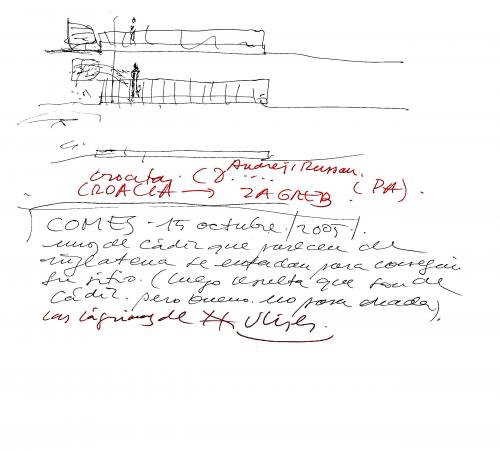 croatas. (y Andrés, Russan.
CROACIA → ZAGREB (PA).
COMES - 15 octubre / 2005 /.
unos de Cádiz que parecen de
inglaterra se enfadan para conseguir
su sitio. (luego resulta que son de
Cádiz. pero bueno. no pasa nada).
las lágrimas de Ulises.